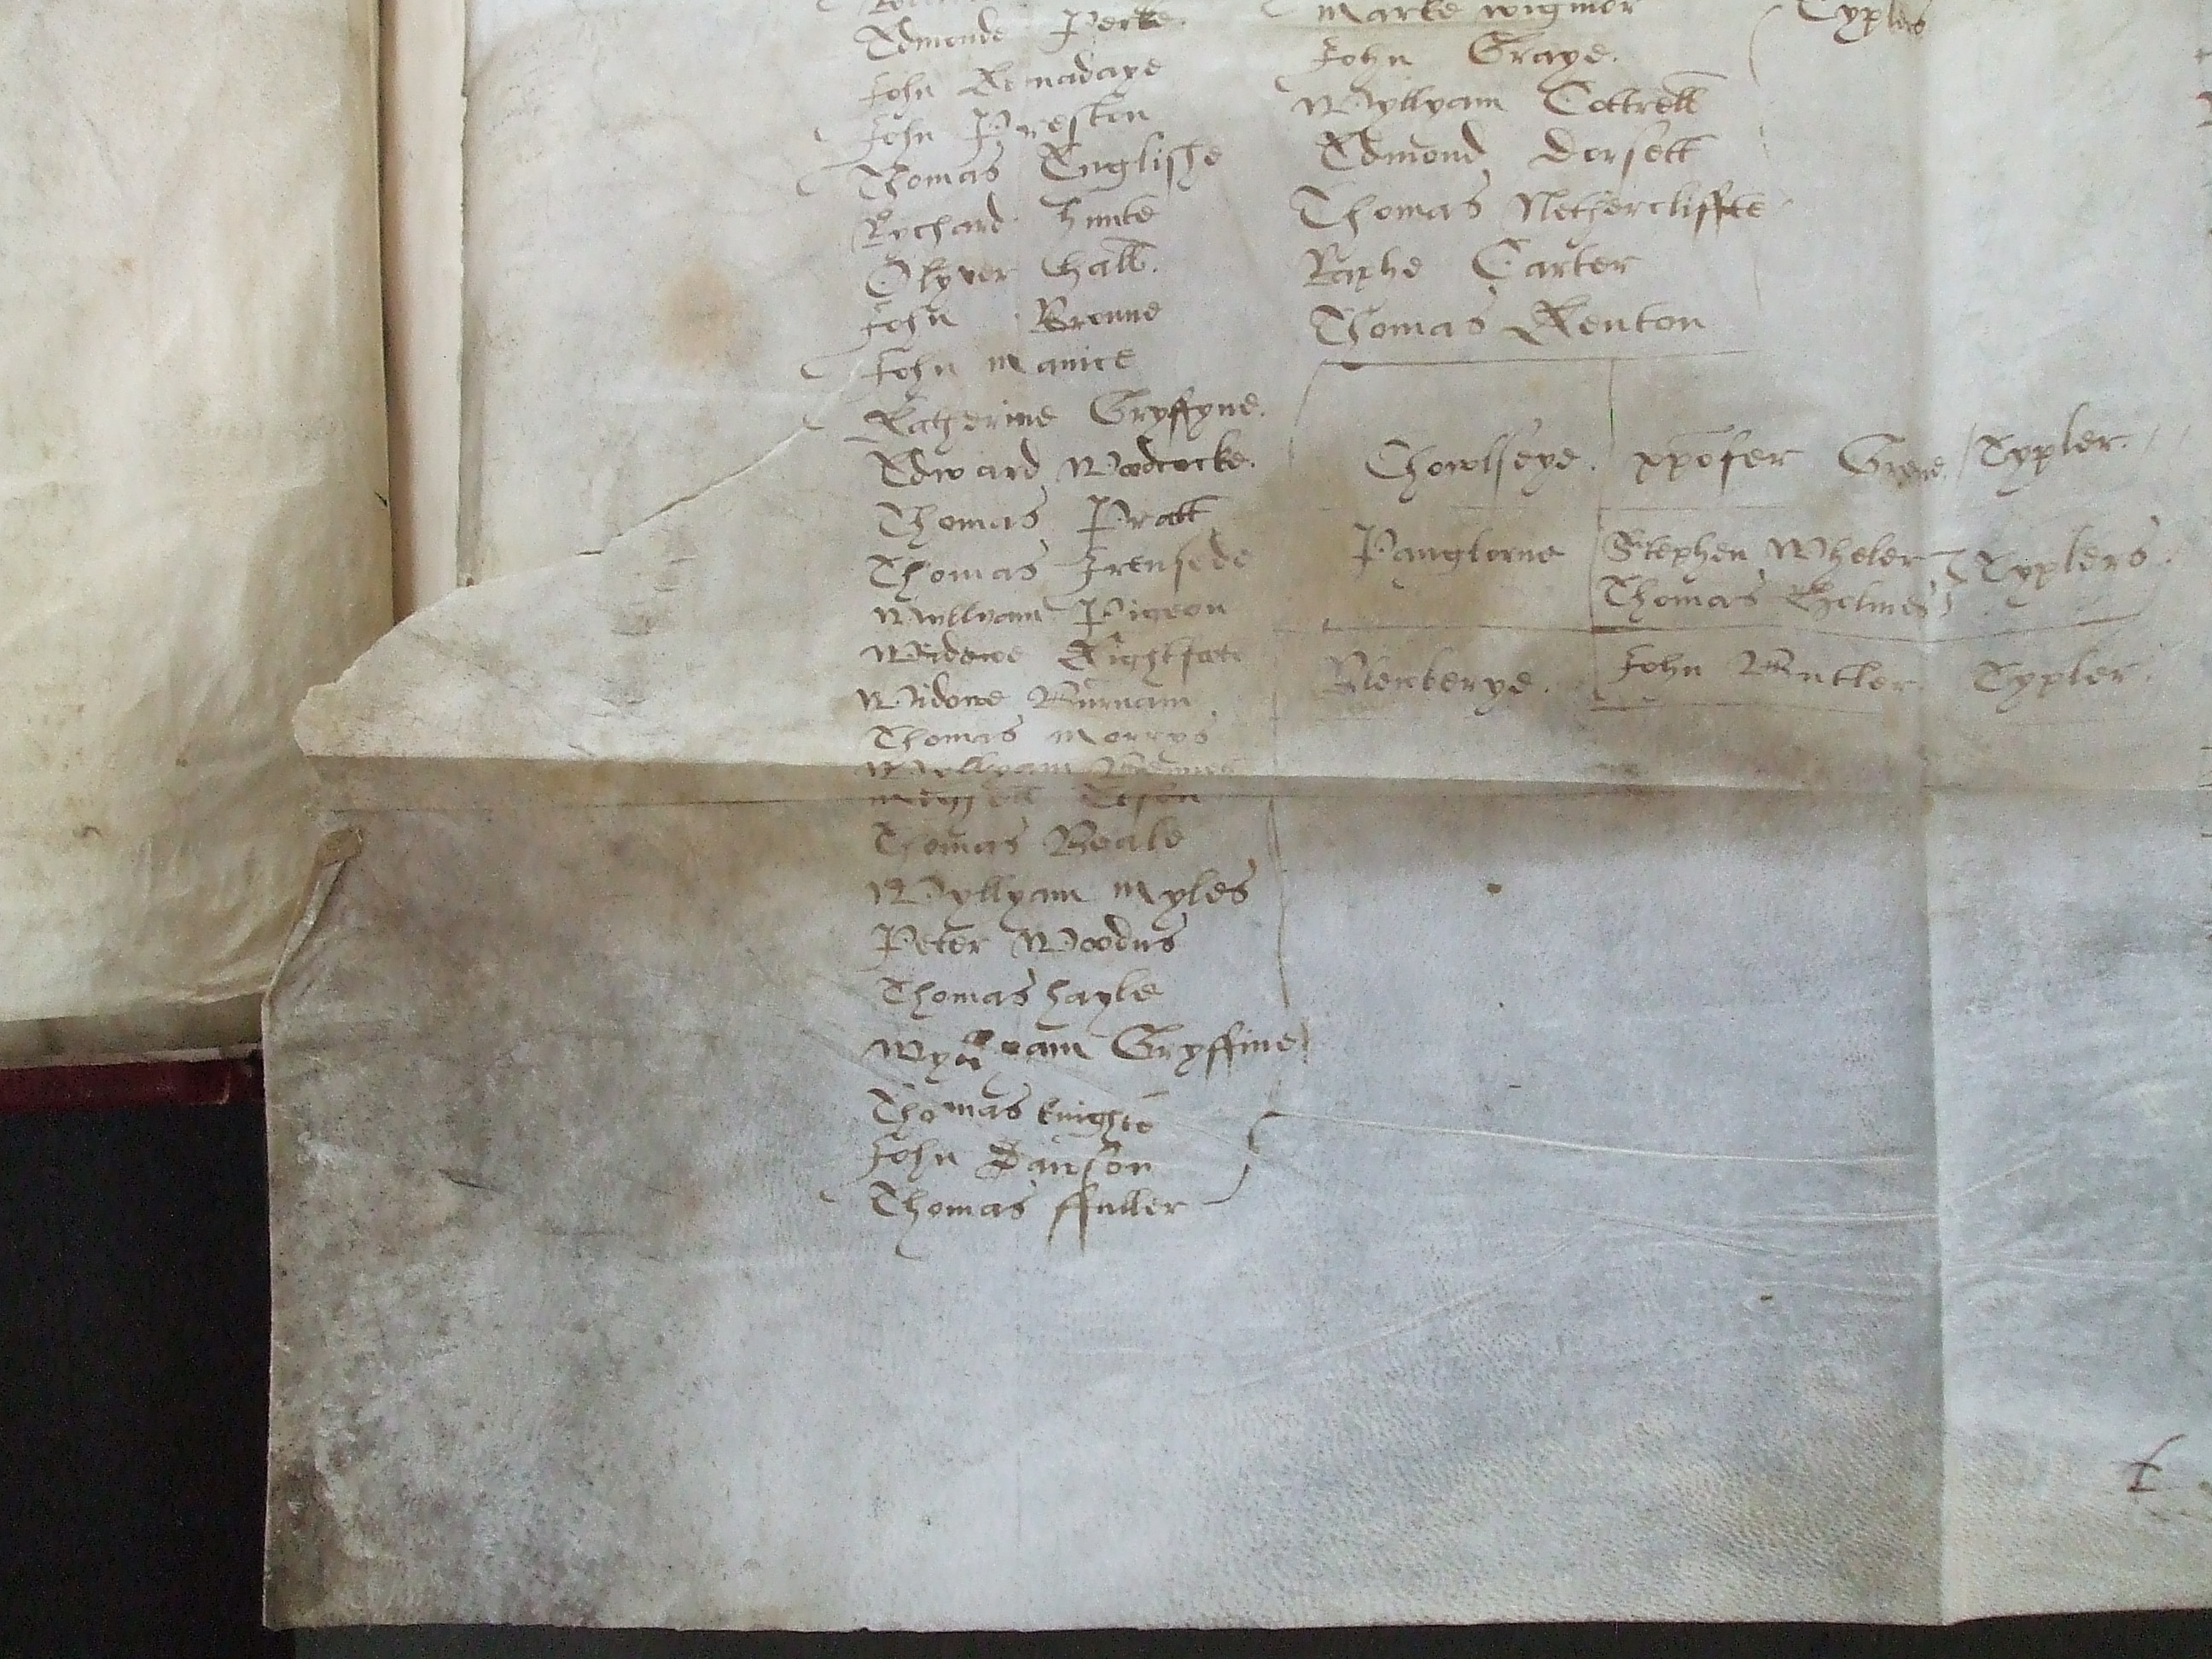 Edmonde Perke.
John Kenadaye
John Preston
Thomas Englishe
Rychard hunte
Olyver Hall.
John Bronne
John Manice
Katherine Gryffyne.
Edward Wodcocke.
Thomas Pratt
Thomas Irensede
Wyllyam Pigeon
Widowe
Widowe Burnam
Thomas Morrys
Wyllyam
Thomas Beale
Wyllyam Myles
Peter Woodus
Thomas hayle
Wyllyam Gryffine
Thomas knighte
John Danson
Thomas ffuller
Marke Wigmor
John Graye.
Wyllyam Cottrell
Edmond Dorsett
Thomas Nethercliffte
Raphe Carter
Thomas Kenton
Typlers
Chowlseye. xpofer Grene Typler.
Panglorne Stephen Wheler Typlers.
Thomas Holmes
Blewberye. John Butler. Typler.